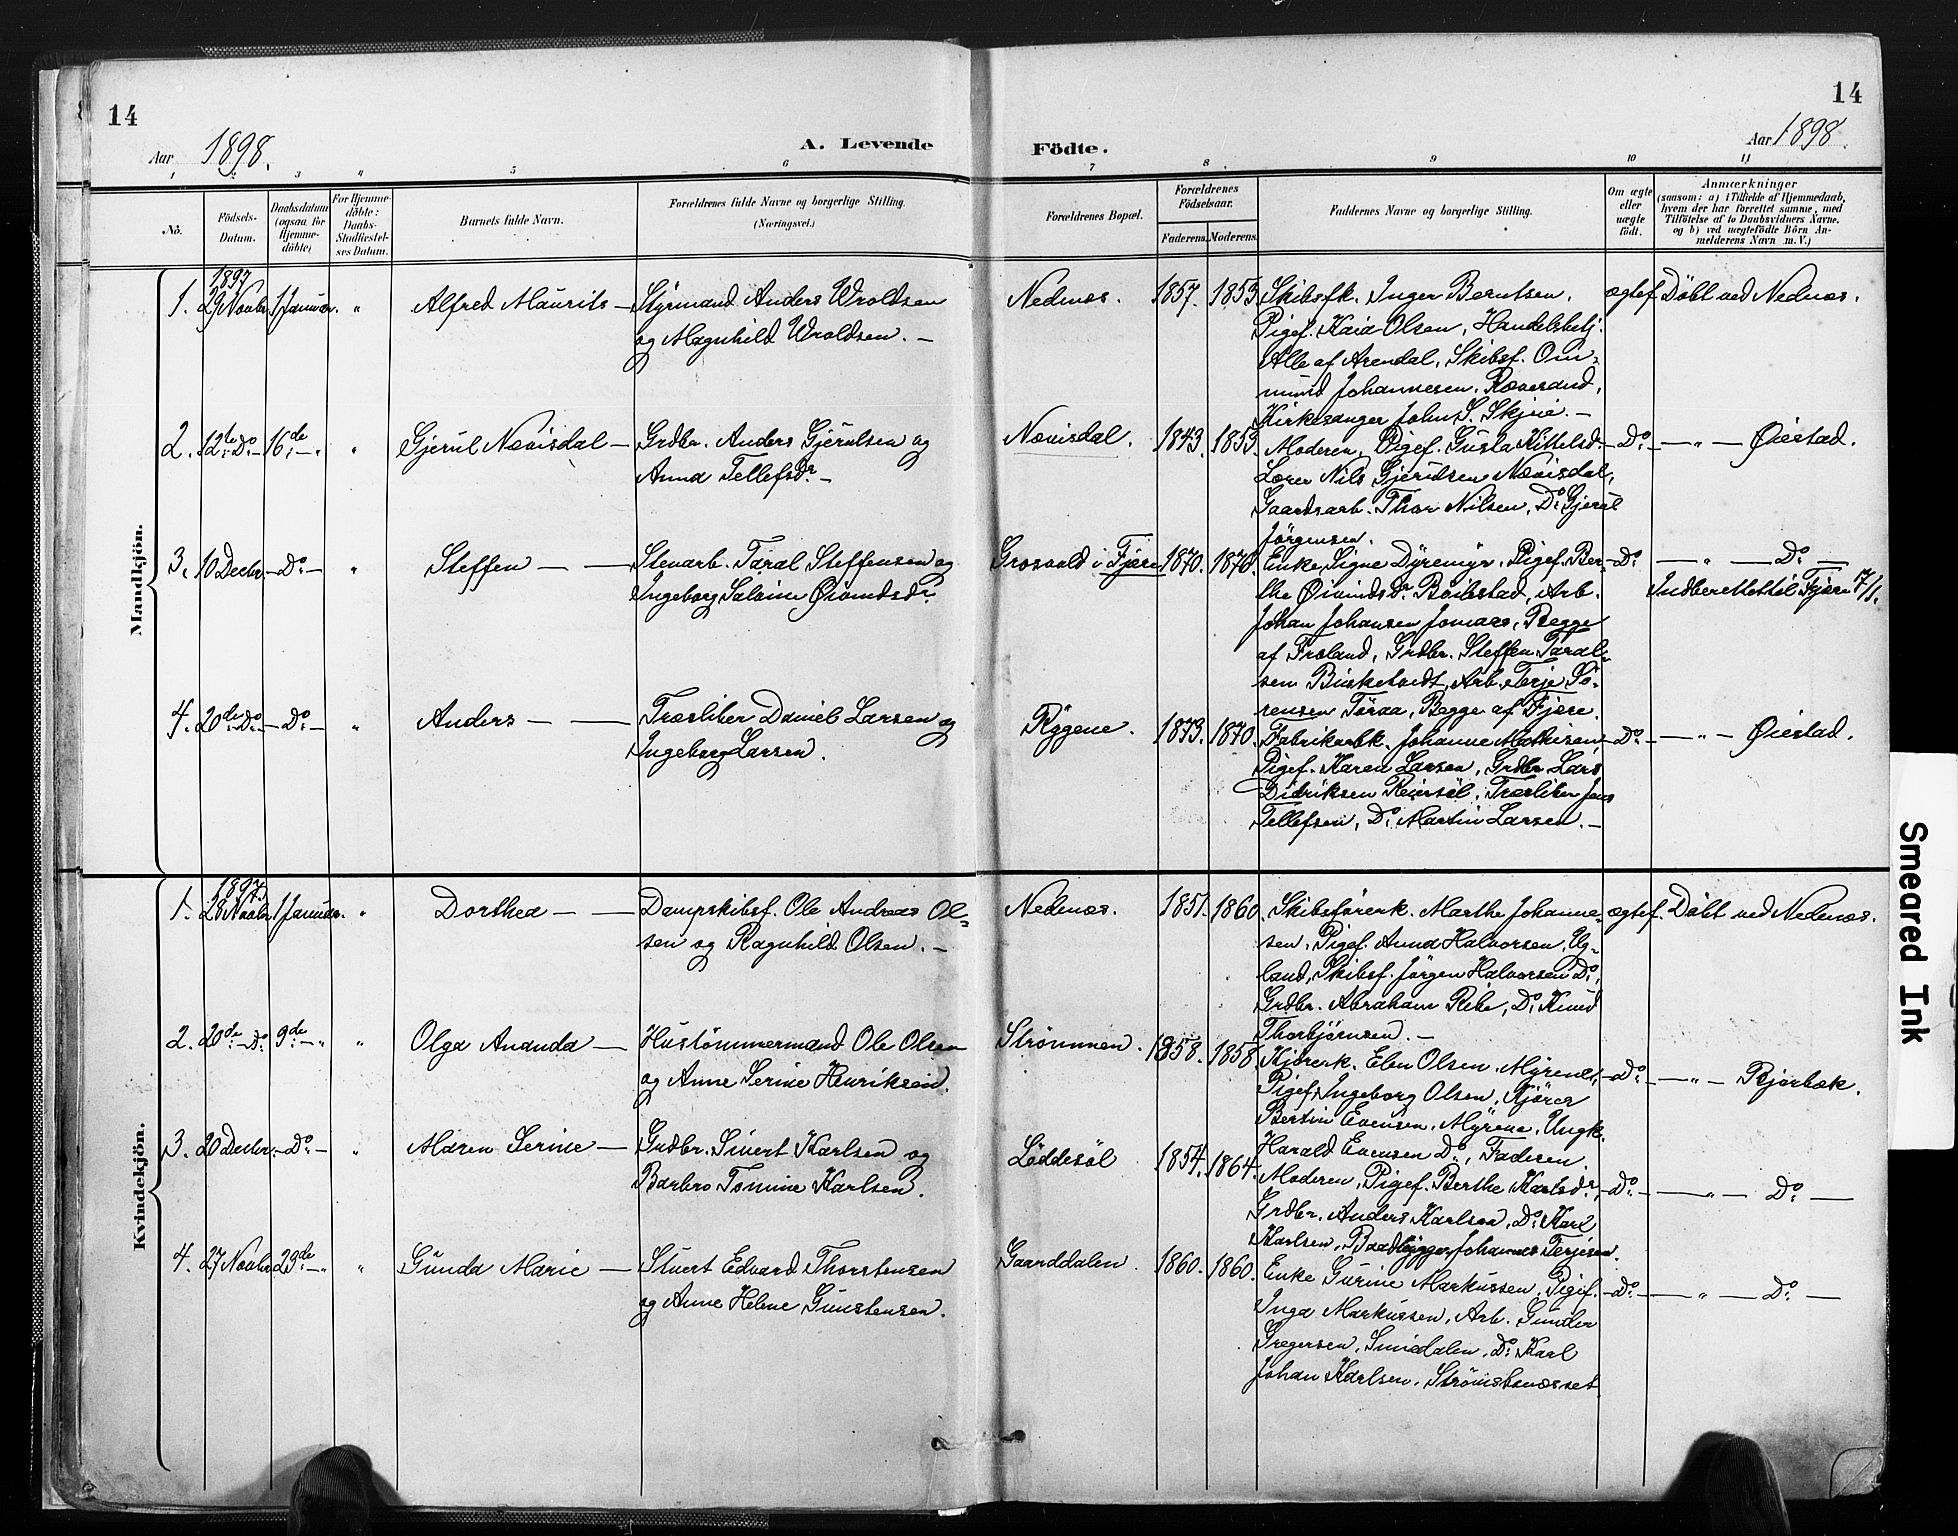 14
14
Aar 1898.
A. Levende
Födte.
Aar 1898.
1 2 3 " 5 6 7 8 9 10 11
No.
Födsels-
Datum.
Daabsdatum
(ogsaa for
Hjemme-
döbte)
For Hjemme-
döbte:
Daabs-
Stadfæstel-
ses Datum.
Barnets fulde Navn.
Forældrenes fulde Navne og borgerlige Stilling.
(Næringsvei.)
Forældrenes Bopæl.
Forældrenes
Födselsaar.
Faderens. Moderens.
Faddernes Navne og borgerlige Stilling.
Om ægte
eller
uægte
födt.
Anmærkninger
(saasom: a) i Tilfælde af Hjemmedaab,
hvem der har forrettet samme, med
Tilföielse af to Daabsvidners Navne.
og b) ved uægtefödte Börn An-
melderens Navn m. V.)
Mandkjön.
1897
1. 29 Novbr. 1 Januar. " Alfred Maurits — Styrmand Anders Wroldsen
og Magnhild Wroldsen. —
Nednæs. 1857. 1853.
Skibsfk. Inger Berntsen,
Pigef. Kaia Olsen, Handelsbetj.
Alle af Arendal, Skibsf. Om-
mund Johannesen, Rævesand,
Kirkesanger John S. Skjüe. —
ægtef. Döbt ved Nednæs.
2. 12te Do — 16de — " " Gjerul Nævisdal — Grdbr. Anders Gjerulsen og
Anna Tellefsdr. —
Nævisdal. 1843. 1853.
Moderen, Pigef. Gusta Kittelsdr.
Lærer Nils Gjerulsen Nævisdal,
Gaardsarb. Thor Nilsen, Do Gjerul
Jörgensen.
— Do — — " — Øiestad.
3. 10 Decbr. — Do — " Steffen — — Stenarb. Taral Steffensen og
Ingeborg Salvine Øivindsdr.
Grosvold i Fjære 1870. 1870.
Enke Signe Dyremyr, Pigef. Ber-
the Øivindsdr. Boilestad, Arb.
Johan Johansen Jomaas, Begge
af Froland, Grdbr. Steffen Taral-
sen Birketvedt, Arb. Terje Sö-
rensen Töraa, Begge af Fjære.
— Do — " — Do —
Indberettet til Fjære 7/1.
4. 20de Do — Do — " Anders — — Træsliber Daniel Larsen og
Ingeborg Larsen.
Rygene. 1873. 1870.
Fabrikarbk. Johanne Mathisen
Pigef. Karen Larsen, Grdbr Lars
Didriksen Reiersöl, Træsliber Jens
Tellefsen, Do Martin Larsen. —
— Do — — " — Øiestad.
Kvindekjön.
1897
1. 28 Novbr. 1 Januar. " Dorthea — — Dampskibsf. Ole Andreas Ol-
sen og Ragnhild Olsen. —
Nednæs. 1851. 1860.
Skibsförerk. Marthe Johanne-
sen, Pigef. Anna Halvorsen, Ug-
land, Skibsf. Jörgen Halvorsen Do,
Grdbr. Abraham Ribe, Do Knud
Thorbjörnsen. —
ægtef. Döbt ved Nednæs.
2. 20de — Do 9de — " " Olga Ananda — Hustömmermand Ole Olsen
og Anne Serine Henriksen.
Strömmen. 1858. 1858.
Kjörerk. Elen Olsen, Myrene,
Pigef. Ingeborg Olsen, Kjörer
Bertin Evensen, Myrene, Ungk.
Harald Evensen Do, Faderen.
— Do — — " — Bjorbæk.
3. 20 Decbr. — Do — " Maren Serine — Grdbr. Sivert Karlsen og
Barbro Tomine Karlsen.
Löddesöl 1854. 1864.
Moderen, Pigef. Berthe Karlsdr.,
Grdbr. Anders Karlsen, Do Karl
Karlsen, Baadbygger Johannes Terjesen.
— Do — — " — Do —
4. 27 Novbr. 29de — " " Gunda Marie — Sivert Edvard Thorstensen
og Anne Helene Gunstensen.
Gaarddalen. 1860. 1860.
Enke Gurine Markussen, Pigef.
Inga Markussen, Arb. Gunder
Gregersen, Smedalen, Do Karl
Johan Karlsen, Strömsbunesset
— Do — — " — Do —
Smeared Ink